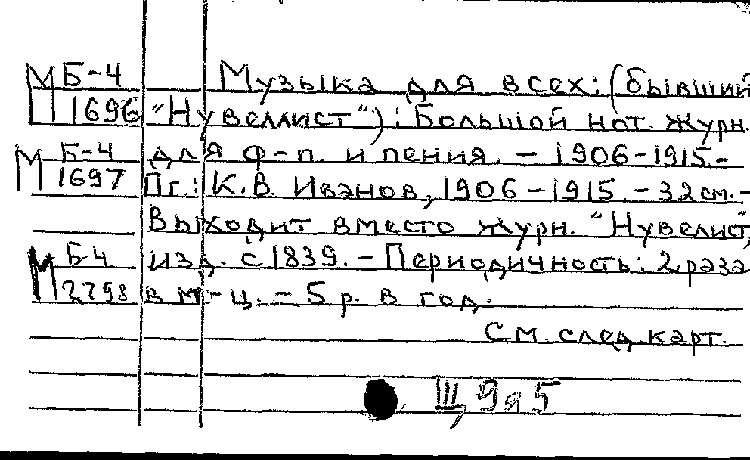 М Б-4 Музыка для всех: (бывший
1696 "Нувеллист"): Большой нот. журн.
М Б-4 для ф-п. и пения. - 1906-1915.-
1697 Пг.: К.В. Иванов, 1906-1915. - 32 см. -
Выходит вместо журн. "Нувелист",
М Б-4 изд. с 1839. - Периодичность: 2 раза
2798 в м-ц. - 5 р. в год.
См. след. карт.
Щ 9я5